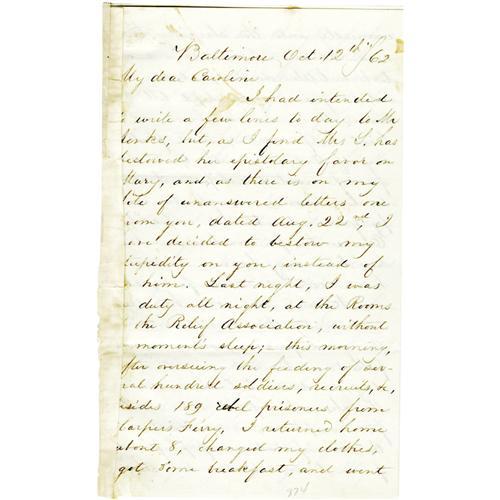 Baltimore Oct. 12th / 62
My dea Caroline
I had intended
write a few lines to day to Mr
onks, but, as I find Mrs S. has
estowed her epistolary favor on
Mary, and as there is on my
ite of unanswered letters one
rom you, dated Aug. 22nd, I
ave decided to bestow my
tupidity on you, instead of
him. Last night, I was
duty all night, at the Rooms
the Relief Association, without
moment's sleep;– this morning,
fter overseeing the feeding of sev-
ral hundred soldiers, recruits, &c,
esides 189 rebel prisoners from
Harper's Ferry, I returned home
about 8, changed my clothes,
got some breakfast, and went